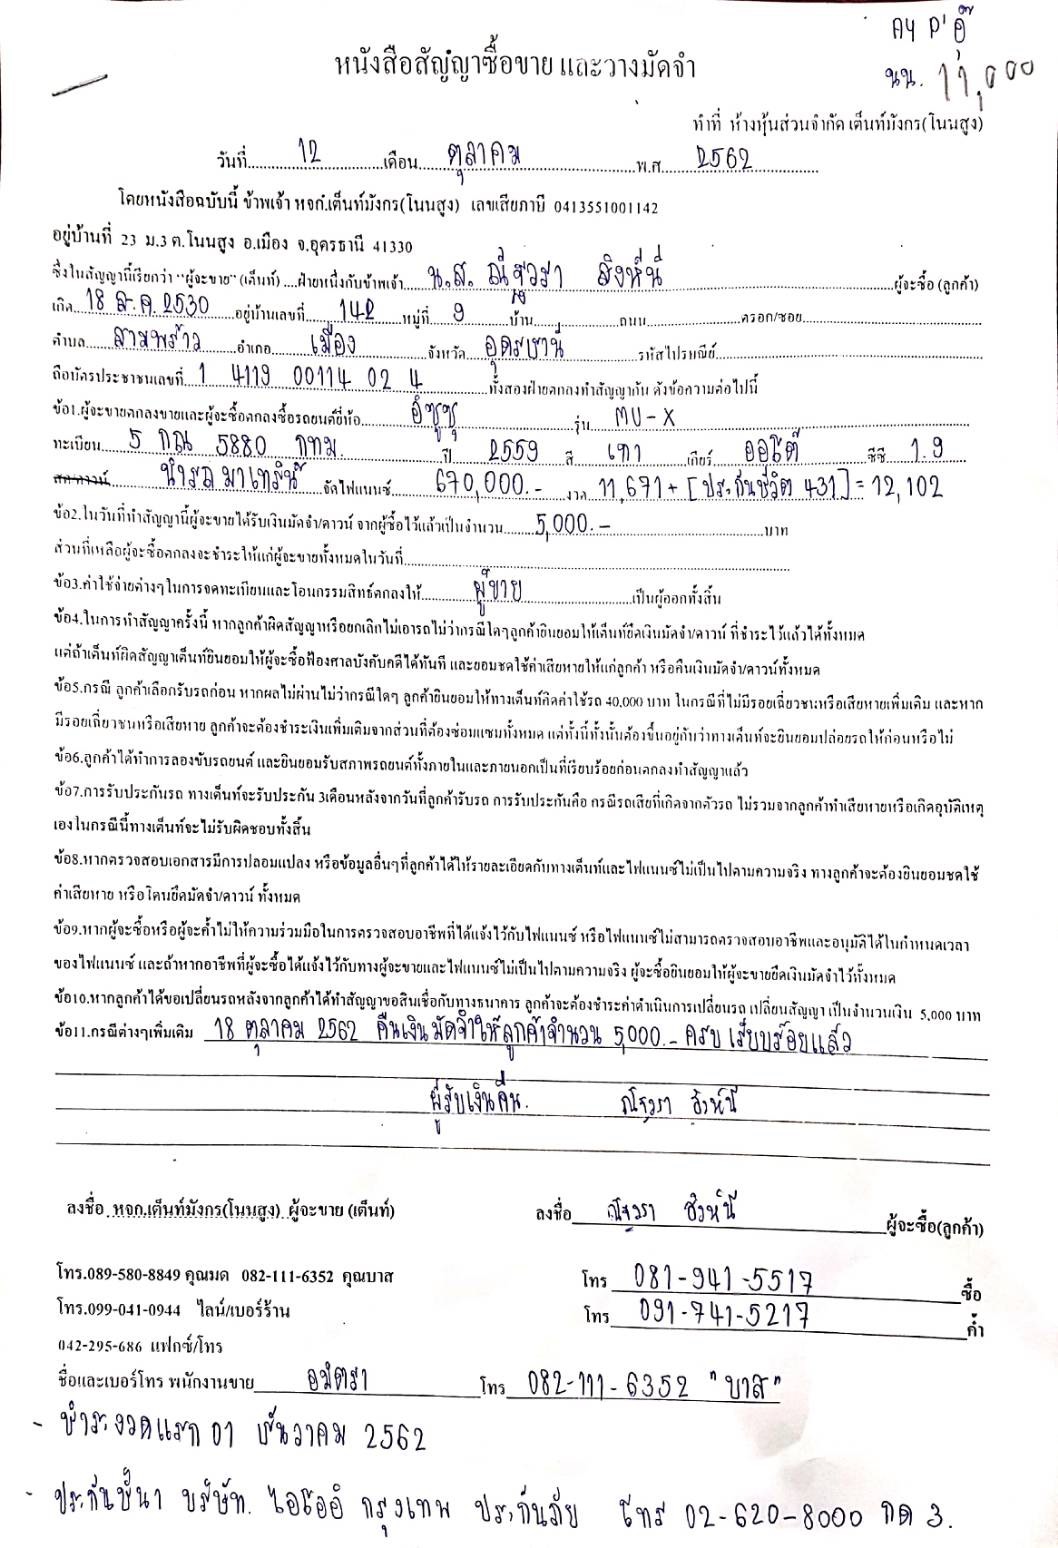 AY P'อุ๊
นน. 11,000
หนังสือสัญญาซื้อขาย และวางมัดจำ
ทำที่ ห้างหุ้นส่วนจำกัด เต็นท์มังกร(โนนสูง)
วันที่ 12 เดือน ตุลาคม พ.ศ. 2562
โดยหนังสือฉบับนี้ ข้าพเจ้า หจก.เต็นท์มังกร(โนนสูง) เลขเสียภาษี 0413551001142
อยู่บ้านที่ 23 ม.3 ต.โนนสูง อ.เมือง จ.อุดรธานี 41330
ซึ่งในสัญญานี้เรียกว่า "ผู้จะขาย" (เต็นท์) ....ฝ่ายหนึ่งกับข้าพเจ้า น.ส. ณัฐวรา สิงห์นี ผู้จะซื้อ (ลูกค้า)
เกิด 18 ส.ค. 2530 อยู่บ้านเลขที่ 142 หมู่ที่ 9 บ้าน ถนน ตรอก/ซอย
ตำบล สามพร้าว อำเภอ เมือง จังหวัด อุดรธานี รหัสไปรษณีย์
ถือบัตรประชาชนเลขที่ 1 4119 00114 02 4 ทั้งสองฝ่ายตกลงทำสัญญากัน ดังข้อความต่อไปนี้
ข้อ1.ผู้จะขายตกลงขายและผู้จะซื้อตกลงซื้อรถยนต์ยี่ห้อ อีซูซุ รุ่น MU-X
ทะเบียน 5 กณ 5880 กทม. ปี 2559 สี เทา เกียร์ ออโต้ ซีซี 1.9
สด/ดาวน์ นำรถมาเทรินี จัดไฟแนนซ์ 670,000.- งวด 11,671 + [ประกันชีวิต 431] = 12,102
ข้อ2.ในวันที่ทำสัญญานี้ผู้จะขายได้รับเงินมัดจำ/ดาวน์ จากผู้ซื้อไว้แล้วเป็นจำนวน 5,000.- บาท
ส่วนที่เหลือผู้จะซื้อตกลงจะชำระให้แก่ผู้จะขายทั้งหมดในวันที่
ข้อ3.ค่าใช้จ่ายต่างๆในการจดทะเบียนและโอนกรรมสิทธ์ตกลงให้ ผู้ขาย เป็นผู้ออกทั้งสิ้น
ข้อ4.ในการทำสัญญาครั้งนี้ หากลูกค้าผิดสัญญาหรือยกเลิกไม่เอารถไม่ว่ากรณีใดๆลูกค้ายินยอมให้เต็นท์ยึดเงินมัดจำ/ดาวน์ ที่ชำระไว้แล้วได้ทั้งหมด
แต่ถ้าเต็นท์ผิดสัญญาเต็นท์ยินยอมให้ผู้จะซื้อฟ้องศาลบังคับคดีได้ทันที และยอมชดใช้ค่าเสียหายให้แก่ลูกค้า หรือคืนเงินมัดจำ/ดาวน์ทั้งหมด
ข้อ5.กรณี ลูกค้าเลือกรับรถก่อน หากผลไม่ผ่านไม่ว่ากรณีใดๆ ลูกค้ายินยอมให้ทางเต็นท์คิดค่าใช้รถ 40,000 บาท ในกรณีที่ไม่มีรอยเฉี่ยวชนหรือเสียหายเพิ่มเติม และหาก
มีรอยเฉี่ยวชนหรือเสียหาย ลูกค้าจะต้องชำระเงินเพิ่มเติมจากส่วนที่ต้องซ่อมแซมทั้งหมด แต่ทั้งนี้ทั้งนั้นต้องขึ้นอยู่กับว่าทางเต็นท์จะยินยอมปล่อยรถให้ก่อนหรือไม่
ข้อ6.ลูกค้าได้ทำการลองขับรถยนต์ และยินยอมรับสภาพรถยนต์ทั้งภายในและภายนอกเป็นที่เรียบร้อยก่อนตกลงทำสัญญาแล้ว
ข้อ7.การรับประกันรถ ทางเต็นท์จะรับประกัน 3เดือนหลังจากวันที่ลูกค้ารับรถ การรับประกันคือ กรณีรถเสียที่เกิดจากตัวรถ ไม่รวมจากลูกค้าทำเสียหายหรือเกิดอุบัติเหตุ
เองในกรณีนี้ทางเต็นท์จะไม่รับผิดชอบทั้งสิ้น
ข้อ8.หากตรวจสอบเอกสารมีการปลอมแปลง หรือข้อมูลอื่นๆที่ลูกค้าได้ให้รายละเอียดกับทางเต็นท์และไฟแนนซ์ไม่เป็นไปตามความจริง ทางลูกค้าจะต้องยินยอมชดใช้
ค่าเสียหาย หรือโดนยึดมัดจำ/ดาวน์ ทั้งหมด
ข้อ9.หากผู้จะซื้อหรือผู้จะค้ำไม่ให้ความร่วมมือในการตรวจสอบอาชีพที่ได้แจ้งไว้กับไฟแนนซ์ หรือไฟแนนซ์ไม่สามารถตรวจสอบอาชีพและอนุมัติได้ในกำหนดเวลา
ของไฟแนนซ์ และถ้าหากอาชีพที่ผู้จะซื้อได้แจ้งไว้กับทางผู้จะขายและไฟแนนซ์ไม่เป็นไปตามความจริง ผู้จะซื้อยินยอมให้ผู้จะขายยึดเงินมัดจำไว้ทั้งหมด
ข้อ10.หากลูกค้าได้ขอเปลี่ยนรถหลังจากลูกค้าได้ทำสัญญาขอสินเชื่อกับทางธนาคาร ลูกค้าจะต้องชำระค่าดำเนินการเปลี่ยนรถ เปลี่ยนสัญญา เป็นจำนวนเงิน 5,000 บาท
ข้อ11.กรณีต่างๆเพิ่มเติม 18 ตุลาคม 2562 คืนเงินมัดจำให้ลูกค้าจำนวน 5,000.- ครบ เรียบร้อยแล้ว
ผู้รับเงินคืน. ณัฐวรา สิงห์นี
ลงชื่อ หจก.เต็นท์มังกร(โนนสูง) ผู้จะขาย (เต็นท์) ลงชื่อ ณัฐวรา สิงห์นี ผู้จะซื้อ(ลูกค้า)
โทร.089-580-8849 คุณมด 082-111-6352 คุณบาส โทร 081-941-5517 ซื้อ
โทร.099-041-0944 ไลน์/เบอร์ร้าน โทร 091-741-5217 ค้ำ
042-295-686 แฟกซ์/โทร
ชื่อและเบอร์โทร พนักงานขาย อมิตรา โทร 082-111-6352 "บาส"
- ชำระงวดแรก 01 ธันวาคม 2562
- ประกันชั้น1 บริษัท. ไอโออิ กรุงเทพ ประกันภัย โทร 02-620-8000 กด 3.